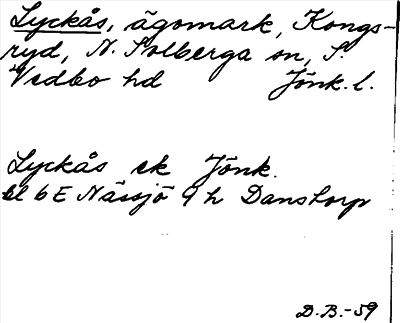 Lyckås, ägomark, Kongs-
ryd, N. Solberga sn, S.
Vedbo hd Jönk. l.
Lyckås ek Jönk.
bl 6E Nässjö 9 h Danstorp
D.B.-59